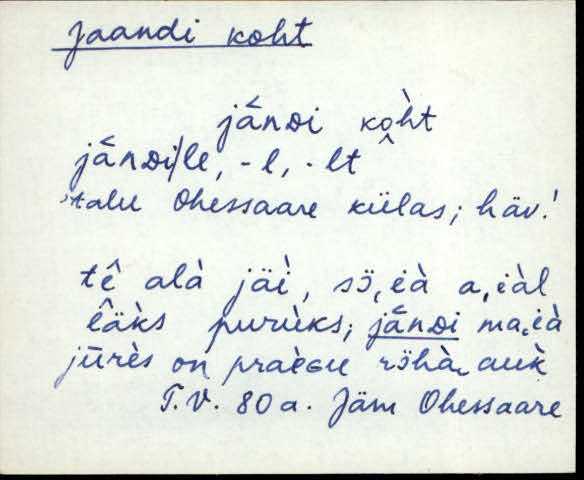 Jaandi koht
jāńᴅi kòh̀t
jāńᴅi/le, -l, -lt
'talu Ohessaare külas; häv.'
tê alà jäì, sȫ͔ià a͔iàl
êäks purùks; jāńᴅi ma͔ià
jūrès on praèɢu rȫhà auk̀
T.V. 80 a. Jäm Ohessaare